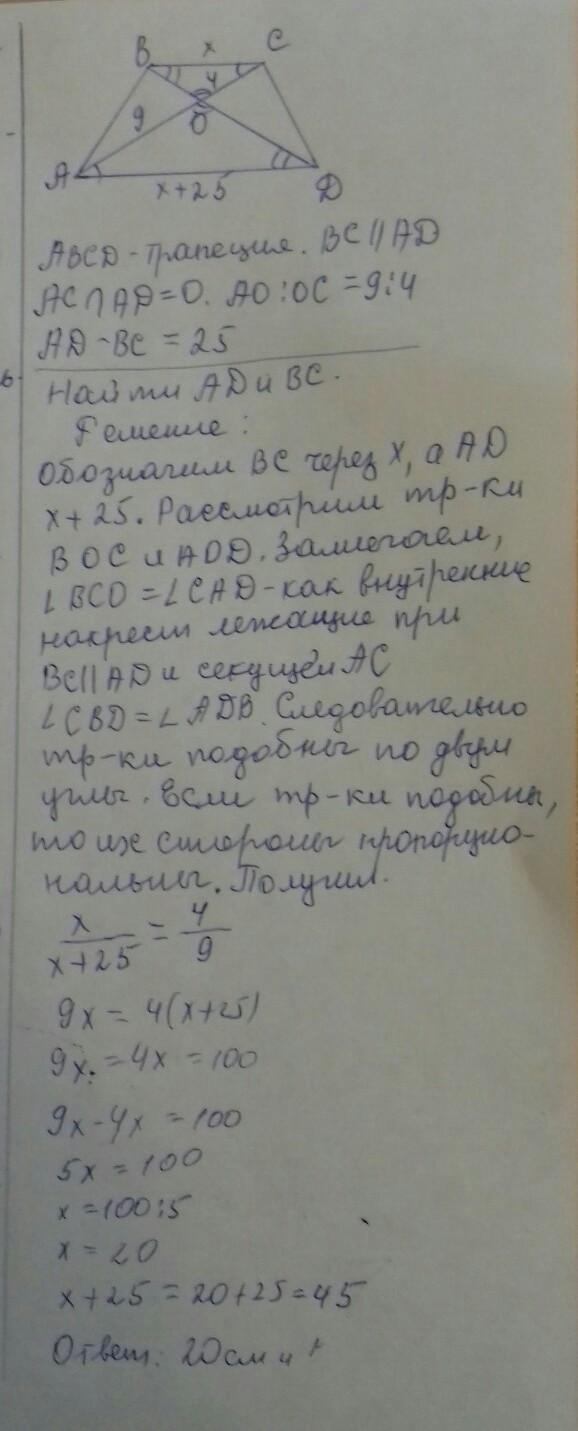 B x C
4
9 O
A x+25 D
ABCD - трапеция. BC || AD
AC ∩ AD = O. AO : OC = 9 : 4
AD - BC = 25
Найти AD и BC.
Решение:
Обозначим BC через x, а AD
x + 25. Рассмотрим тр-ки
BOC и AOD. Замечаем,
∠BCO = ∠CAD - как внутренние
накрест лежащие при
BC || AD и секущей AC
∠CBD = ∠ADB. Следовательно
тр-ки подобны по двум
углы. Если тр-ки подобны,
то их стороны пропорцио-
нальны. Получим.
x/(x+25) = 4/9
9x = 4(x+25)
9x = 4x = 100
9x - 4x = 100
5x = 100
x = 100:5
x = 20
x + 25 = 20 + 25 = 45
Ответ: 20 см и